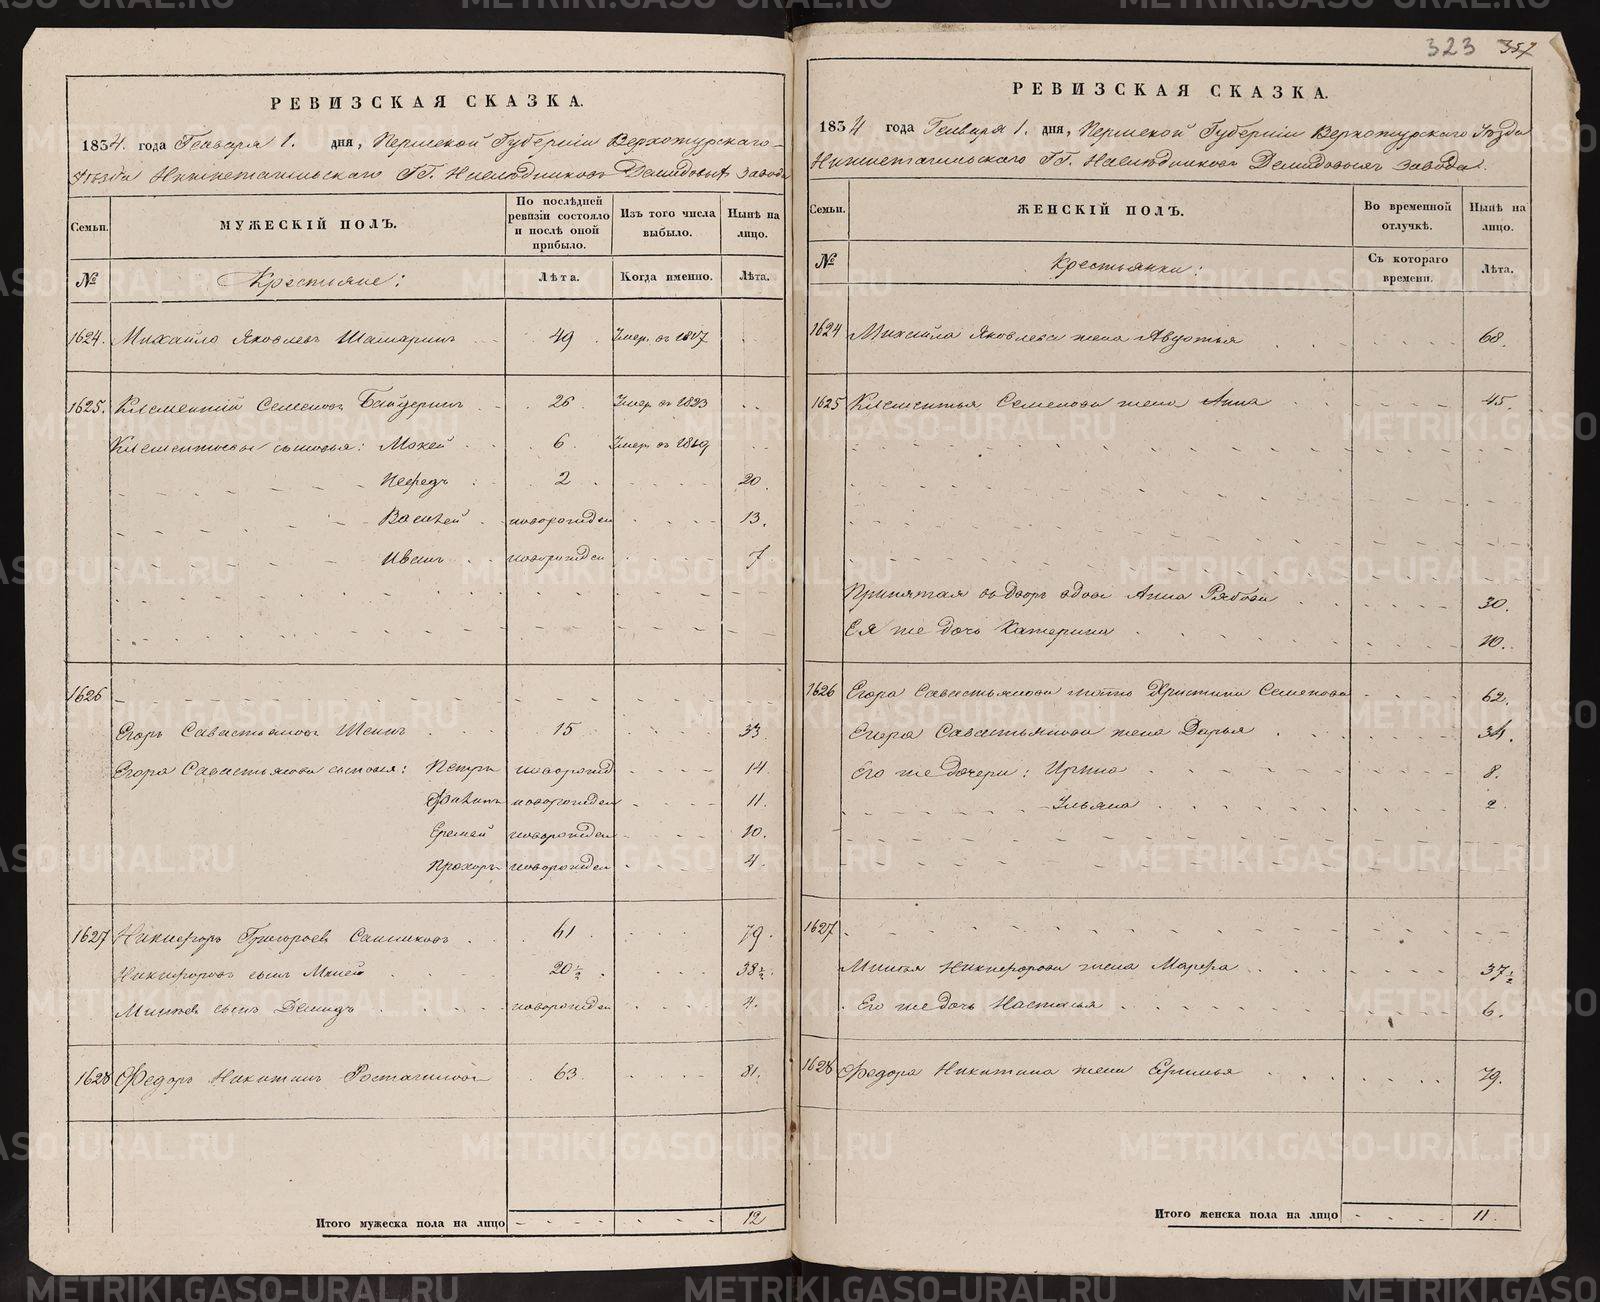 323 357
РЕВИЗСКАЯ СКАЗКА.
1834. года Генваря 1. дня, Пермской Губерніи Верхотурскаго
Уѣзда Нижнетагильскаго ГГ. Наслѣдниковъ Демидовых завода
Семьи.
МУЖЕСКІЙ ПОЛЪ.
По послѣдней ревизіи состояло и послѣ оной прибыло.
Изъ того числа выбыло.
Нынѣ на лицо.
№ Крестьяне: Лѣта. Когда именно. Лѣта.
1624. Михайло Яковлевъ 49 Умер. въ 1827
1625. Климентій Семеновъ 26 Умер. въ 1823
Климентьевы сыновья: Мокей 6 Умер. въ 1819
Нефедъ 2 20.
Василей новорожден 13.
Иванъ новорожден 7
1626
Егоръ Савастьяновъ 15 33
Егора Савастьянова сыновья: Петръ новорожд 14
Филипъ новорожден 11.
Еремей новорожден 10.
Прохоръ новорожден 4.
1627 Никифоръ Григорьев Санниковъ 61 79.
Никифоровъ сынъ Миней 20½ 38½.
Минѣев сынъ Демидъ новорожден 4.
1628 Федоръ Никитинъ 63 81.
Итого мужеска пола на лицо 12
РЕВИЗСКАЯ СКАЗКА.
1834 года Генваря 1. дня, Пермской Губерніи Верхотурскаго Уѣзда
Нижнетагильскаго ГГ. Наслѣдниковъ Демидовыхъ завода.
Семьи.
ЖЕНСКІЙ ПОЛЪ.
Во временной отлучкѣ.
Нынѣ на лицо.
№ Крестьянки: Съ котораго времени. Лѣта.
1624 Михайла Яковлева жена Авдотья 68.
1625 Климентья Семенова жена Анна 45.
Принятая въ дворъ вдова Анна Рябова 30.
Ея же дочь Катерина 10.
1626 Егора Савастьянова мать Христина Семенова 62.
Егора Савастьянова жена Дарья 34.
Его же дочери: Ирина 8.
Ульяна 2.
1627
Минея Никифорова жена Марфа 37½
Его же дочь Настасья 6.
1628 Федора Никитина жена 79.
Итого женска пола на лицо 11.
METRIKI.GASO-URAL.RU